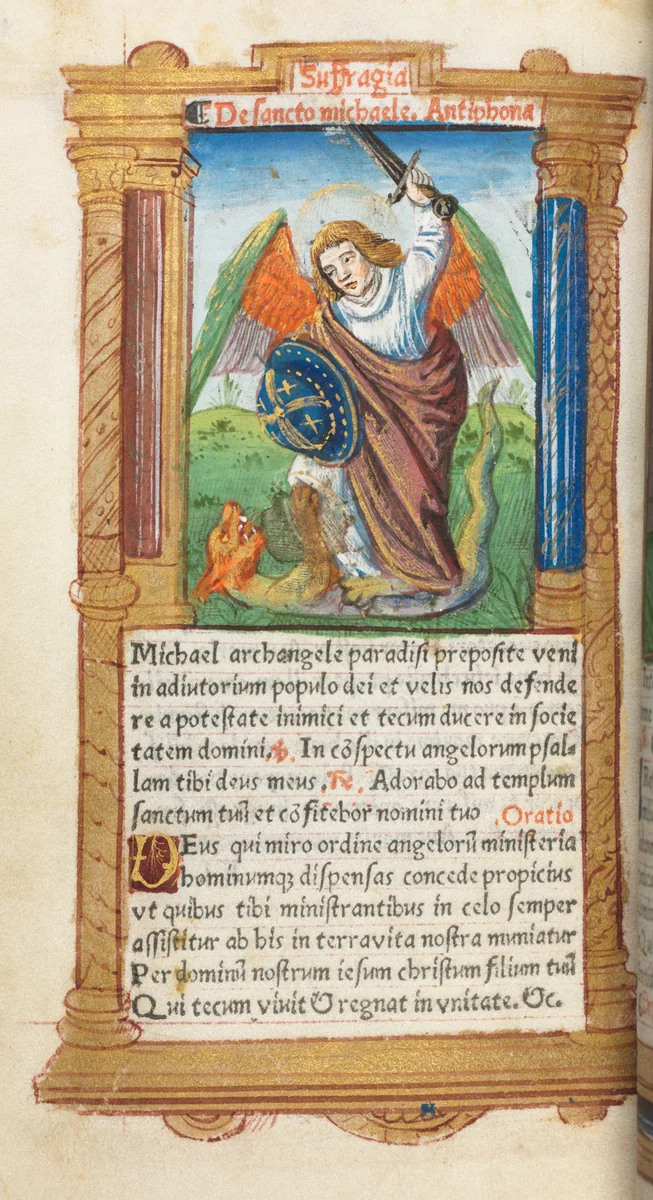 Suffragia
De sancto michaele. Antiphona
Michael archangele paradisi preposite veni
in adiutorium populo dei et velis nos defende
re a potestate inimici et tecum ducere in socie
tatem domini. ℣. In cõspectu angelorum psal⸗
lam tibi deus meus. ℟. Adorabo ad templum
sanctum tuũ et cõfitebor nomini tuo .Oratio
DEus qui miro ordine angelorũ ministeria
hominumqꝫ dispensas concede propicius
vt quibus tibi ministrantibus in celo semper
assistitur ab his in terra vita nostra muniatur
Per dominũ nostrum iesum christum filium tuũ
Qui tecum viuit & regnat in vnitate. &c.